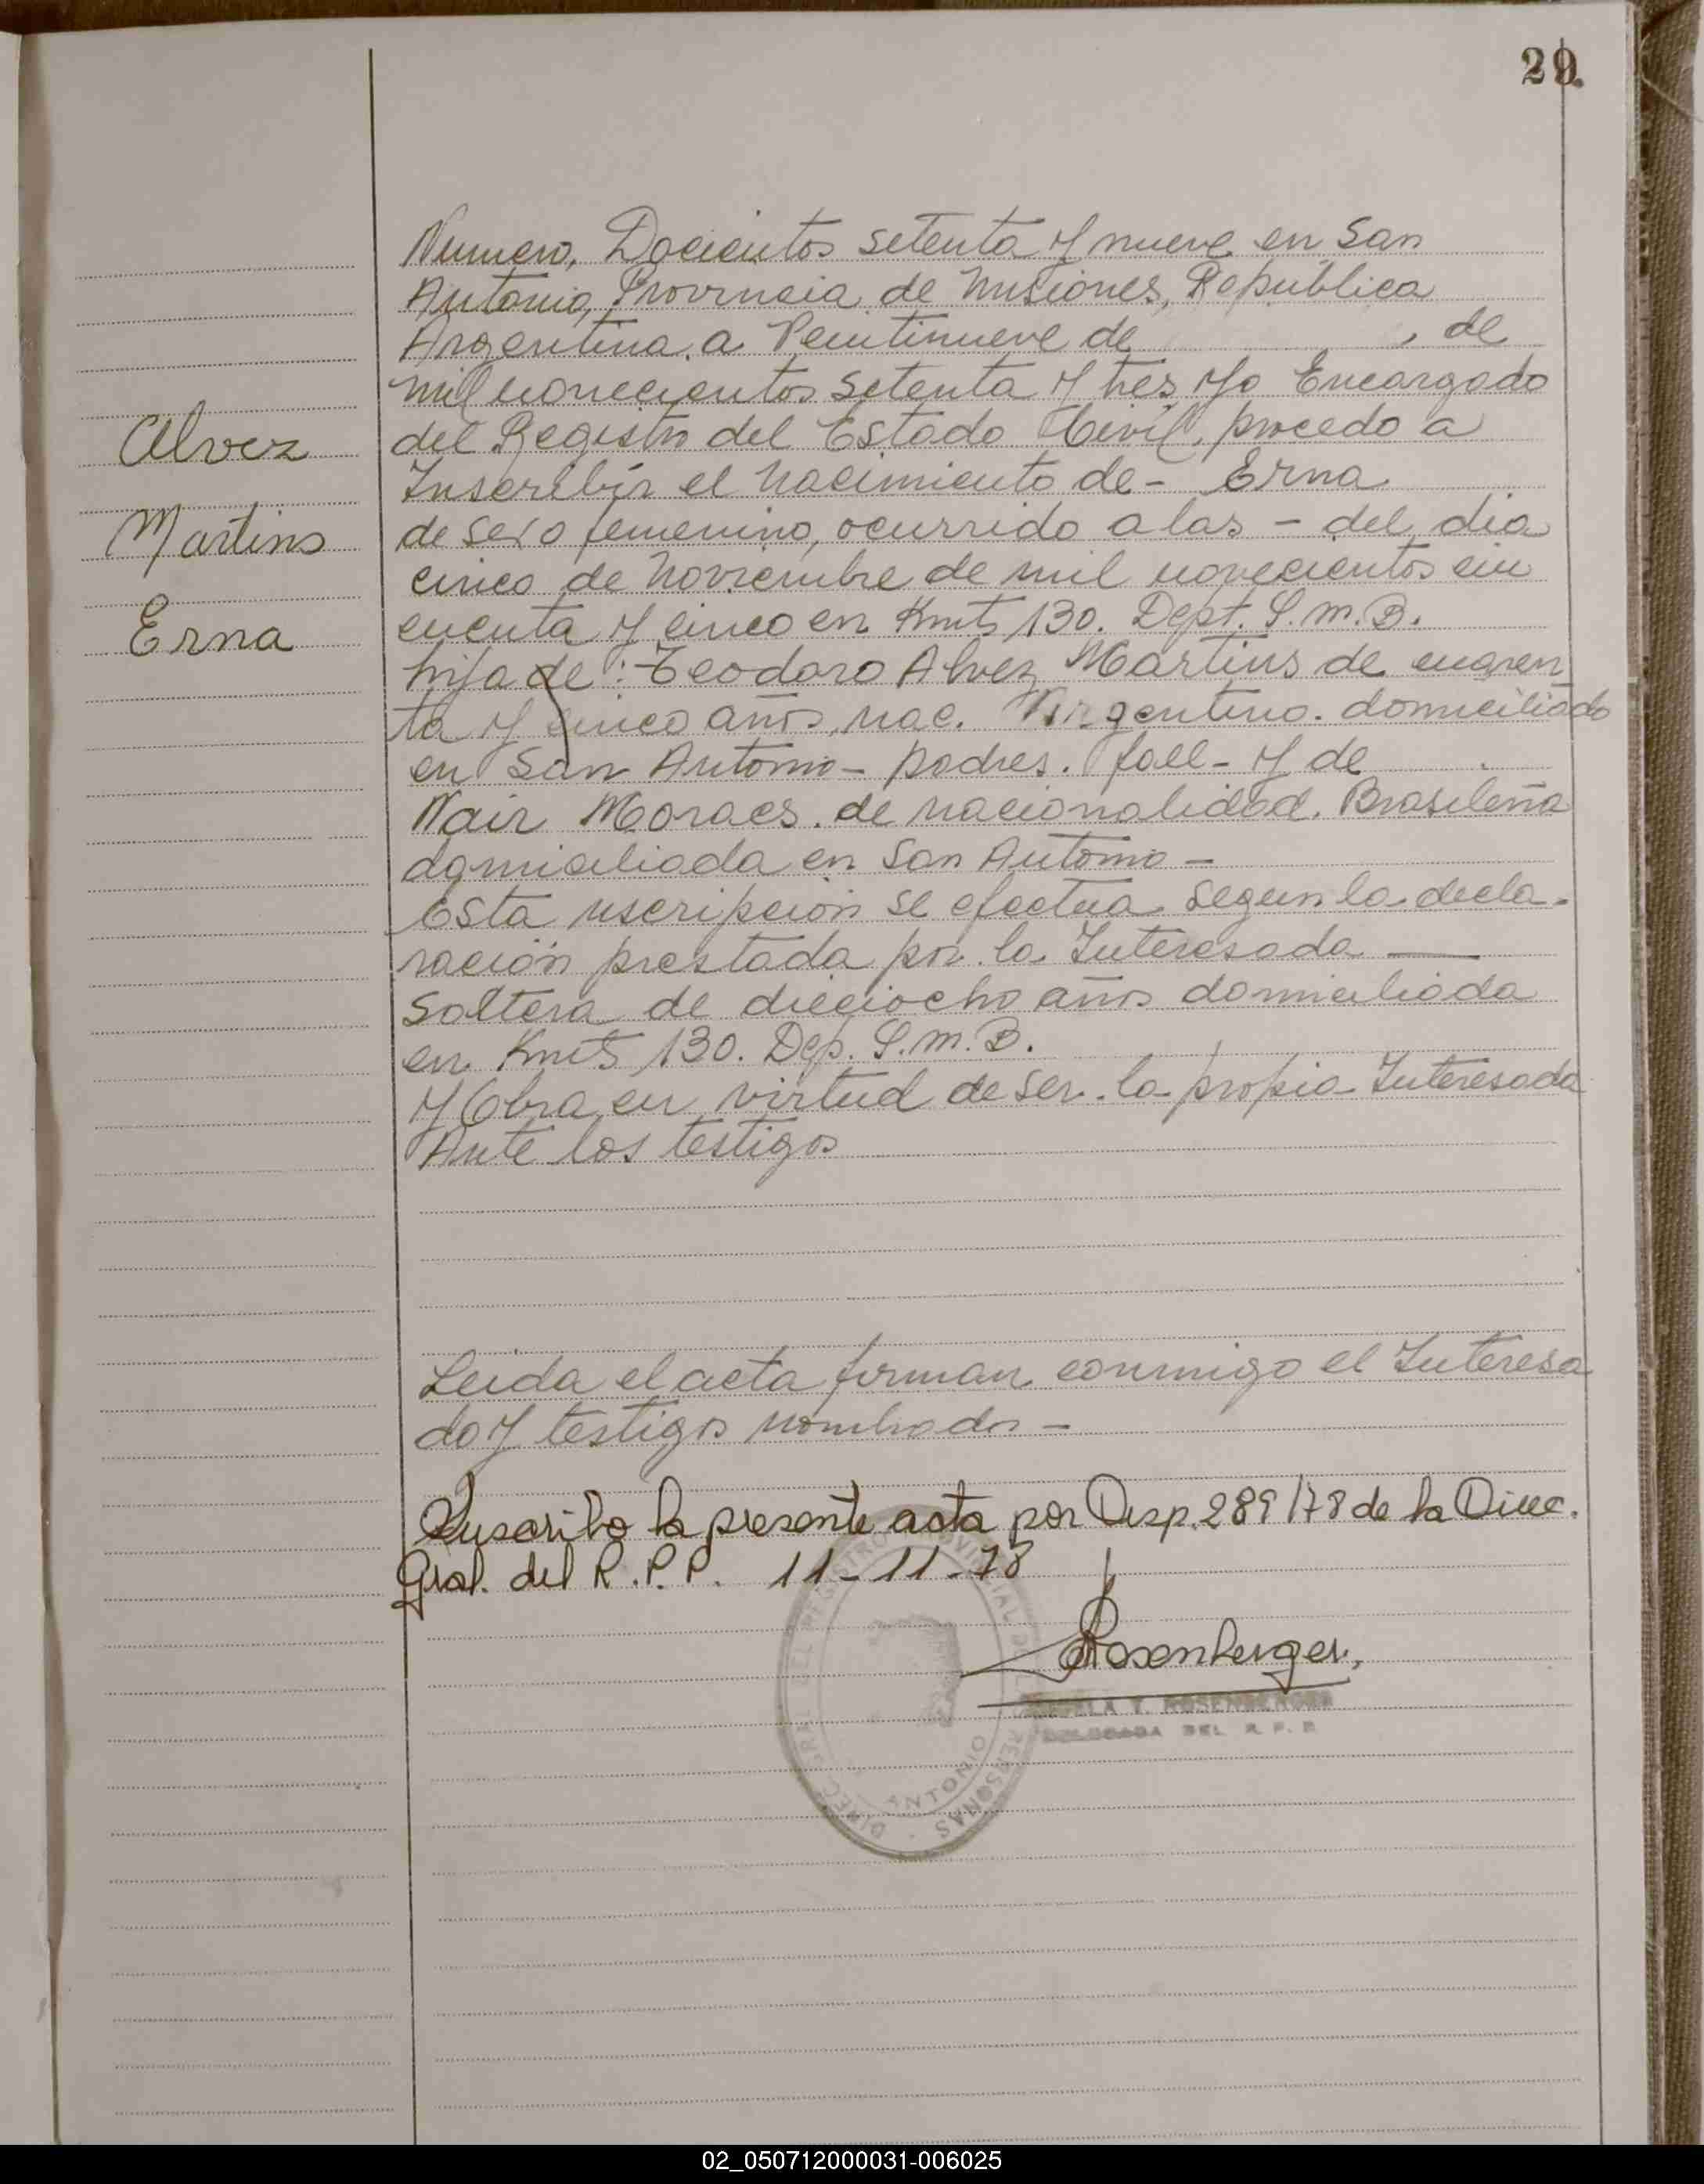 29.
Alvez
Martins
Erna
Numero, Docientos setenta y nueve en San
Antonio, Provincia de Misiones, Republica
Argentina. a Veintinueve de , de
mil novecientos setenta y tres yo Encargado
del Registro del Estado Civil, procedo a
Inscribir el nacimiento de - Erna
de sexo femenino, ocurrido a las - del dia
cinco de Noviembre de mil novecientos cin
cuenta y cinco en Kmts 130. Dept. S.M.B.
hija de : Teodoro Alvez Martins de cuaren
ta y cinco años, nac. Argentino. domiciliado
en San Antonio - padres. fall - y de
Nair Moraes. de nacionalidad. Brasileña
domiciliada en San Antonio -
Esta iscripción se efectua segun la decla-
ración prestada por la Interesada —
Soltera de dieciocho años domiciliada
en Kmts 130. Dep. S.M.B.
y Obra en virtud de ser la propia Interesada
Ante los testigos
Leida el acta firman conmigo el Interesa
do y testigos nombrados -
Suscribo la presente acta por Disp. 289/78 de la Direc.
Gral. del R.P.P. 11-11-78
Rosenberger.
Y. ROSENBERGER
DELEGADA DEL R. P. P.
DIREC. GRAL. DEL REGISTRO PROVINCIAL DE LAS PERSONAS
ANTONIO
02_050712000031-006025